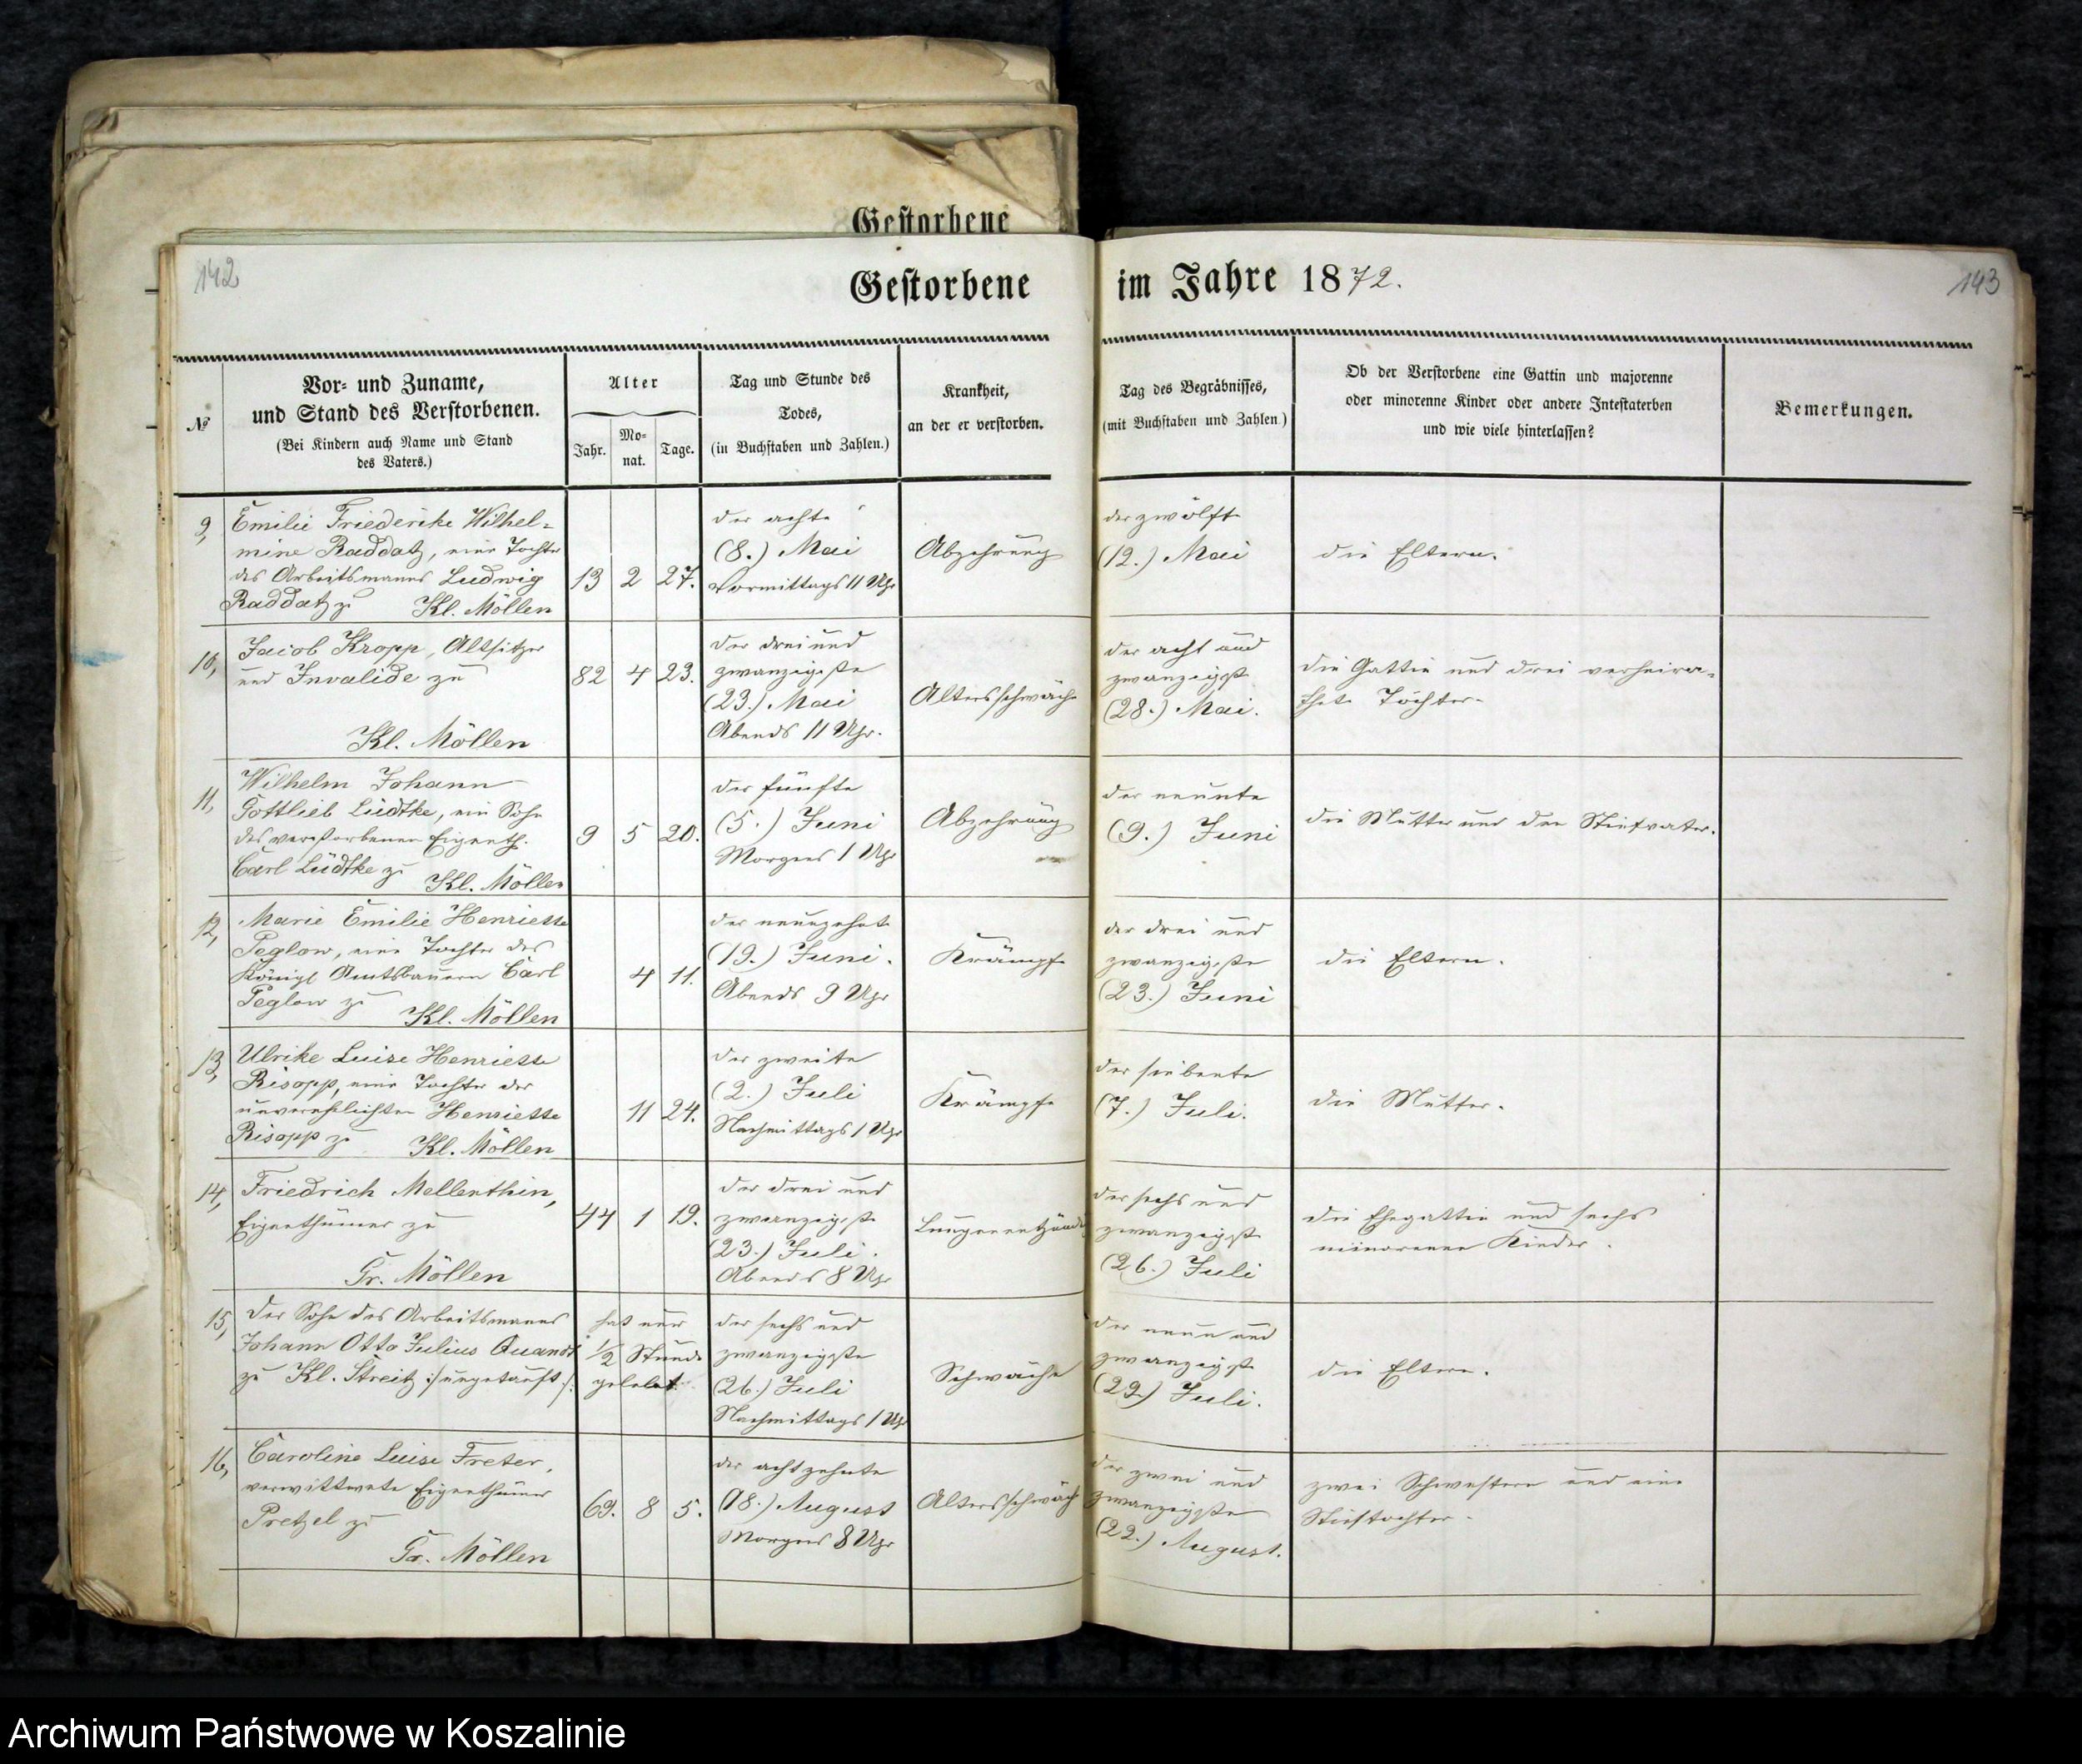 Gestorbene
142
Gestorbene im Jahre 1872.
143
№
Vor- und Zuname,
und Stand des Verstorbenen.
(Bei Kindern auch Name und Stand
des Vaters.)
Alter
Jahr.
Mo-
nat.
Tage.
Tag und Stunde des
Todes,
(in Buchstaben und Zahlen.)
Krankheit,
an der er verstorben.
Tag des Begräbnisses,
(mit Buchstaben und Zahlen.)
Ob der Verstorbene eine Gattin und majorenne
oder minorenne Kinder oder andere Intestaterben
und wie viele hinterlassen?
Bemerkungen.
9,
Emilie Friederike Wilhel-
mine Raddatz, eine Tochter
des Arbeitsmanns Ludwig
Raddatz zu Kl. Möllen
13 2 27.
der achte
(8.) Mai
Vormittags 11 Uhr
Abzehrung
der zwölfte
(12.) Mai
die Eltern.
10,
Jacob Kropp, Altsitzer
und Invalide zu
Kl. Möllen
82 4 23.
der drei und
zwanzigste
(23.) Mai
Abends 11 Uhr.
Altersschwäche
der acht und
zwanzigste
(28.) Mai.
die Gattin und drei verheira-
thete Töchter.
11,
Wilhelm Johann
Gottlieb Lüdtke, ein Sohn
des verstorbenen Eigenth.
Carl Lüdtke zu Kl. Möllen
9 5 20.
der fünfte
(5.) Juni
Morgens 1 Uhr
Abzehrung
der neunte
(9.) Juni
die Mutter und den Stiefvater.
12,
Marie Emilie Henriette
Peglow, eine Tochter des
Königl Amtsbauern Carl
Peglow zu Kl. Möllen
4 11.
der neunzehnte
(19.) Juni.
Abends 9 Uhr
Krämpfe
der drei und
zwanzigste
(23.) Juni
die Eltern.
13,
Ulrike Luise Henriette
Risopp, eine Tochter der
unverehelichten Henriette
Risopp zu Kl. Möllen
11 24.
der zweite
(2.) Juli
Nachmittags 1 Uhr
Krämpfe
der siebente
(7.) Juli.
die Mutter.
14,
Friedrich Mellenthin,
Eigenthümer zu
Gr. Möllen
44 1 19.
der drei und
zwanzigste
(23.) Juli.
Abends 8 Uhr
der sechs und
zwanzigste
(26.) Juli
die Ehegattin und sechs
minorenne Kinder.
15,
Der Sohn des Arbeitsmanns
Johann Otto Julius Quandt
zu Kl. Streitz :/ ungetauft /:
hat nur
1/2 Stunde
gelebt.
der sechs und
zwanzigste
(26.) Juli
Nachmittags 1 Uhr
Schwäche
der neun und
zwanzigste
(29.) Juli.
die Eltern.
16,
Caroline Luise Freter,
verwittwete Eigenthümer
Pretzel zu
Gr. Möllen
69. 8 5.
der achtzehnte
(18.) August
Morgens 8 Uhr
Altersschwäch
der zwei und
zwanzigste
(22.) August.
zwei Schwestern und eine
Stieftochter.
Archiwum Państwowe w Koszalinie